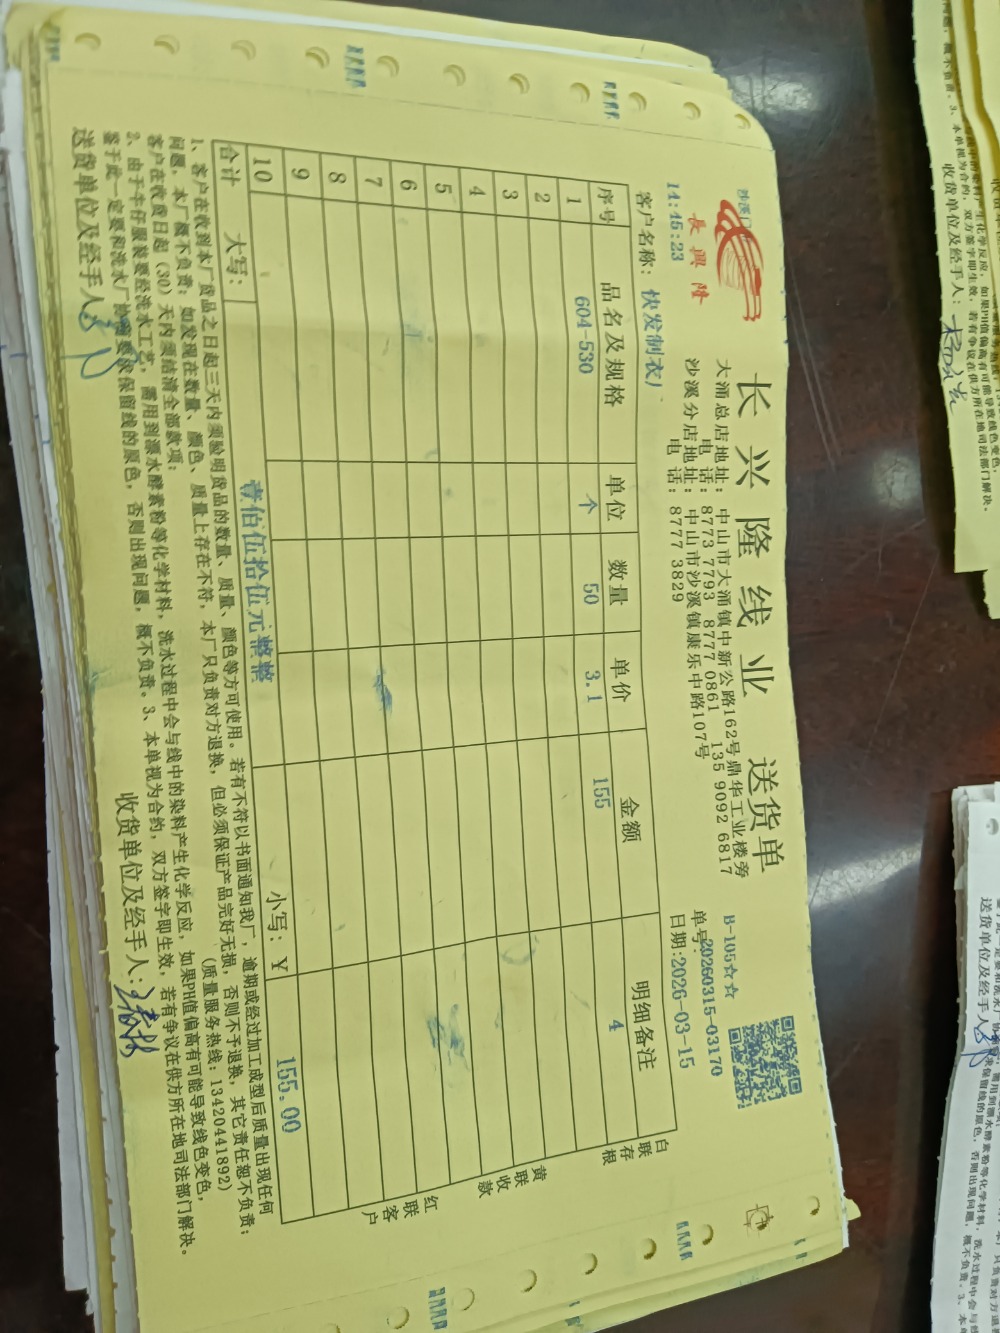 沙溪门
長興隆
长兴隆线业 送货单
大涌总店地址：中山市大涌镇中新公路162号鼎华工业楼旁
电话：8773 7793 8777 0861 135 9092 6817
沙溪分店地址：中山市沙溪镇康乐中路107号
电话：8777 3829
B-105☆☆
14:45:23
单号:20260315-03170
客户名称：快发制衣厂
日期:2026-03-15
序号 品名及规格 单位 数量 单价 金额 明细备注
1 604-530 个 50 3.1 155 4
2
3
4
5
6
7
8
9
10
合计 大写： 壹佰伍拾伍元整整 小写：￥ 155.00
白联存根
黄联收款
红联客户
1、客户在收到本厂货品之日起三天内须验明货品的数量、质量、颜色等方可使用。若有不符以书面通知我厂，逾期或经过加工成型后质量出现任何
问题，本厂概不负责；如发现在数量、颜色、质量上存在不符，本厂只负责对方退换，但必须保证产品完好无损，否则不予退换，其它责任恕不负责；
客户在收货日起（30）天内须结清全部款项； （质量服务热线：13420441892）
2、由于牛仔服装要经洗水工艺，需用到漂水酵素粉等化学材料，洗水过程中会与线中的染料产生化学反应，如果PH值偏高有可能导致线色变色，
鉴于此一定要和洗水厂协商要求保留线的原色，否则出现问题，概不负责。3、本单视为合约，双方签字即生效，若有争议在供方所在地司法部门解决。
送货单位及经手人： 收货单位及经手人：